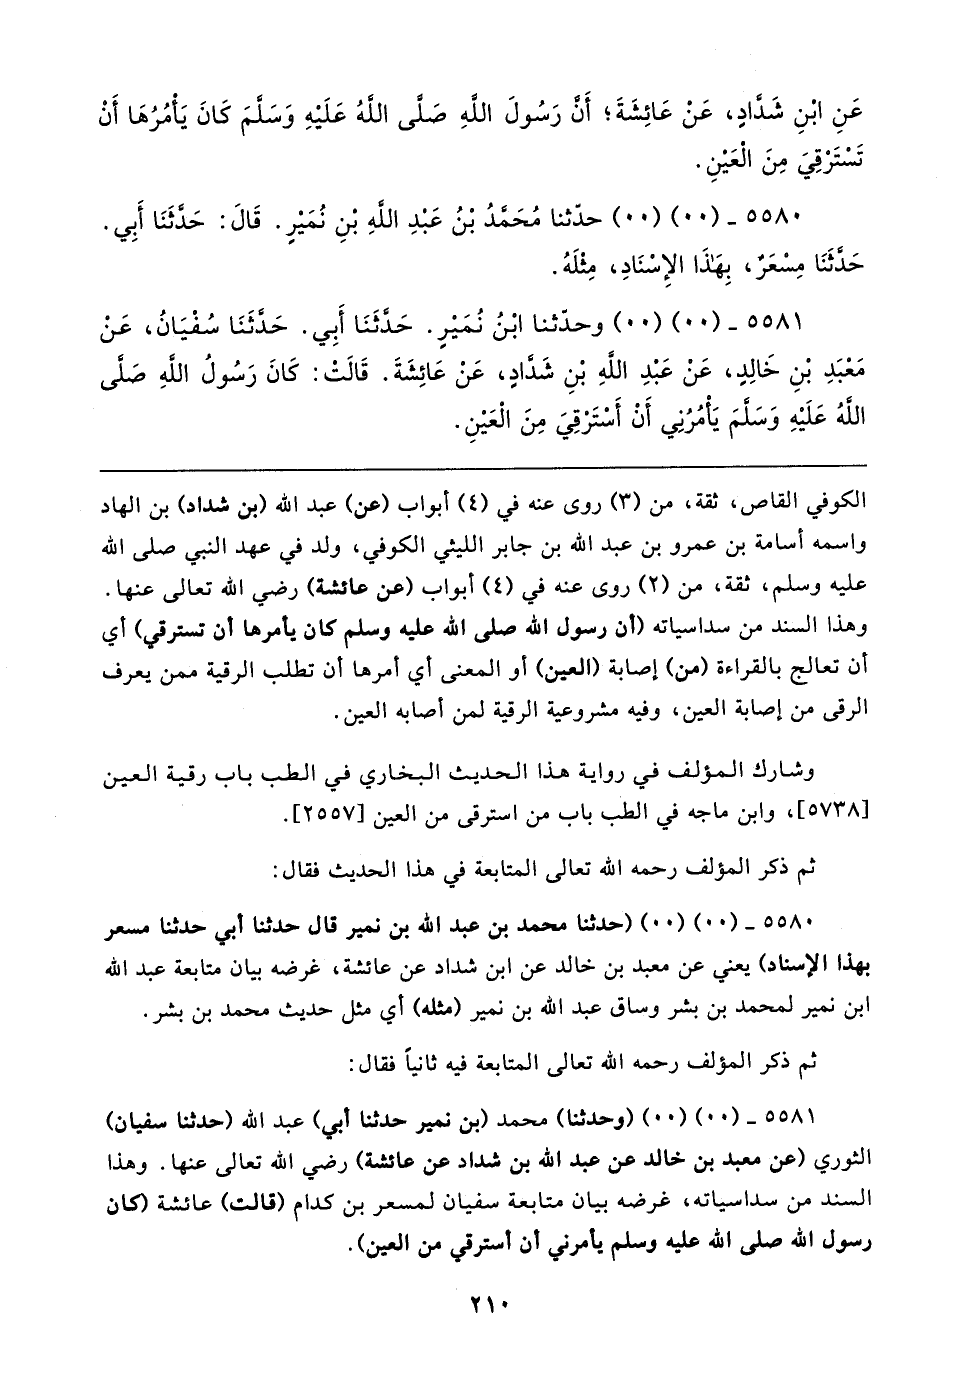 عَنِ ابْنِ شَدَّادٍ، عَنْ عَائِشَةَ؛ أَنَّ رَسُولَ اللَّهِ صَلَّى اللَّهُ عَلَيْهِ وَسَلَّمَ كَانَ يَأْمُرُهَا أَنْ
تَسْتَرْقِيَ مِنَ الْعَيْنِ.
٥٥٨٠ ـ (٠٠) (٠٠) حدّثنا مُحَمَّدُ بْنُ عَبْدِ اللَّهِ بْنِ نُمَيْرٍ. قَالَ: حَدَّثَنَا أَبِي.
حَدَّثَنَا مِسْعَرٌ، بِهَذَا الإِسْنَادِ، مِثْلَهُ.
٥٥٨١ ـ (٠٠) (٠٠) وحدّثنا ابْنُ نُمَيْرٍ. حَدَّثَنَا أَبِي. حَدَّثَنَا سُفْيَانُ، عَنْ
مَعْبَدِ بْنِ خَالِدٍ، عَنْ عَبْدِ اللَّهِ بْنِ شَدَّادٍ، عَنْ عَائِشَةَ. قَالَتْ: كَانَ رَسُولُ اللَّهِ صَلَّى
اللَّهُ عَلَيْهِ وَسَلَّمَ يَأْمُرُنِي أَنْ أَسْتَرْقِيَ مِنَ الْعَيْنِ.
الكوفي القاص، ثقة، من (٣) روى عنه في (٤) أبواب (عن) عبد الله (بن شداد) بن الهاد
واسمه أسامة بن عمرو بن عبد الله بن جابر الليثي الكوفي، ولد في عهد النبي صلى الله
عليه وسلم، ثقة، من (٢) روى عنه في (٤) أبواب (عن عائشة) رضي الله تعالى عنها.
وهذا السند من سداسياته (أن رسول الله صلى الله عليه وسلم كان يأمرها أن تسترقي) أي
أن تعالج بالقراءة (من) إصابة (العين) أو المعنى أي أمرها أن تطلب الرقية ممن يعرف
الرقى من إصابة العين، وفيه مشروعية الرقية لمن أصابه العين.
وشارك المؤلف في رواية هذا الحديث البخاري في الطب باب رقية العين
[٥٧٣٨]، وابن ماجه في الطب باب من استرقى من العين [٢٥٥٧].
ثم ذكر المؤلف رحمه الله تعالى المتابعة في هذا الحديث فقال:
٥٥٨٠ ـ (٠٠) (٠٠) (حدثنا محمد بن عبد الله بن نمير قال حدثنا أبي حدثنا مسعر
بهذا الإسناد) يعني عن معبد بن خالد عن ابن شداد عن عائشة، غرضه بيان متابعة عبد الله
ابن نمير لمحمد بن بشر وساق عبد الله بن نمير (مثله) أي مثل حديث محمد بن بشر.
ثم ذكر المؤلف رحمه الله تعالى المتابعة فيه ثانياً فقال:
٥٥٨١ ـ (٠٠) (٠٠) (وحدثنا) محمد (بن نمير حدثنا أبي) عبد الله (حدثنا سفيان)
الثوري (عن معبد بن خالد عن عبد الله بن شداد عن عائشة) رضي الله تعالى عنها. وهذا
السند من سداسياته، غرضه بيان متابعة سفيان لمسعر بن كدام (قالت) عائشة (كان
رسول الله صلى الله عليه وسلم يأمرني أن أسترقي من العين).
٢١٠